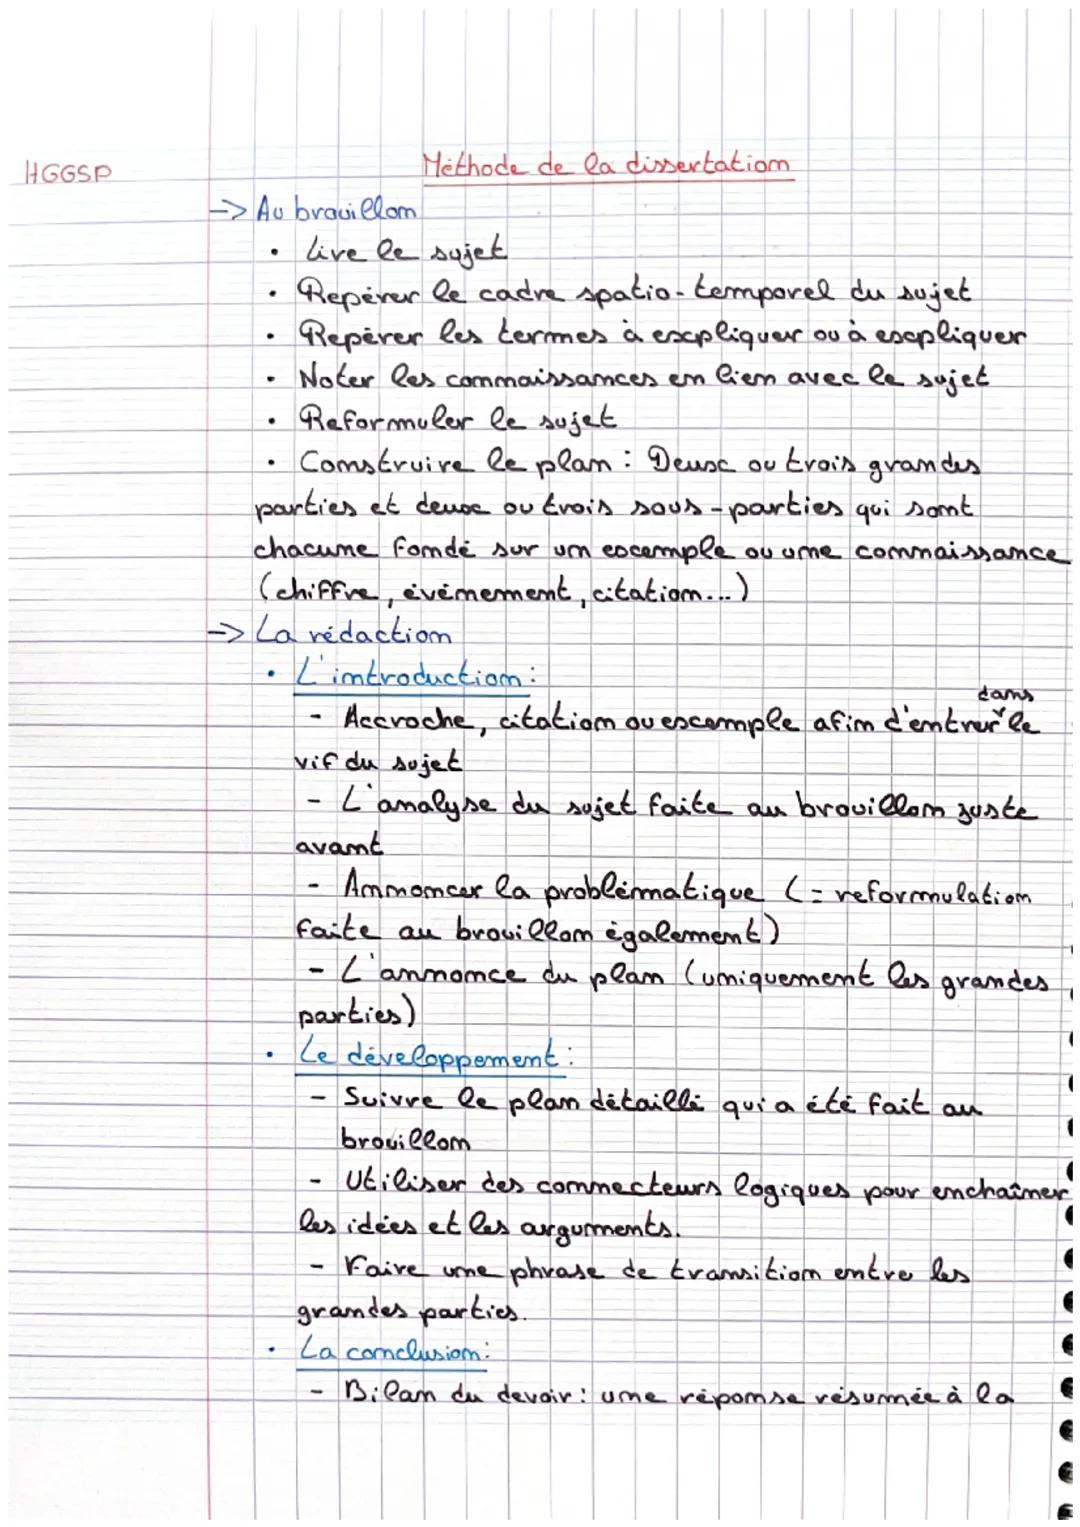 HGGSP
Méthode de la dissertation
-> Au brouillon
• Lire le sujet
• Repérer le cadre spatio-temporel du sujet
• Repérer les termes à expliquer ou à expliquer
• Noter les connaissances en lien avec le sujet
• Reformuler le sujet
• Construire le plan : Deux ou trois grandes
parties et deux ou trois sous-parties qui sont
chacune fondé sur un exemple ou une connaissance
(chiffre, événement, citation...)
-> La rédaction
• L'introduction :
dans
- Accroche, citation ou exemple afin d'entrer le
vif du sujet
- L'analyse du sujet faite au brouillon juste
avant
- Annoncer la problématique (= reformulation
faite au brouillon également)
- L'annonce du plan (uniquement les grandes
parties)
• Le développement :
- Suivre le plan détaillé qui a été fait au
brouillon
- Utiliser des connecteurs logiques pour enchaîner
les idées et les arguments.
- Faire une phrase de transition entre les
grandes parties.
• La conclusion :
- Bilan du devoir : une réponse résumée à la